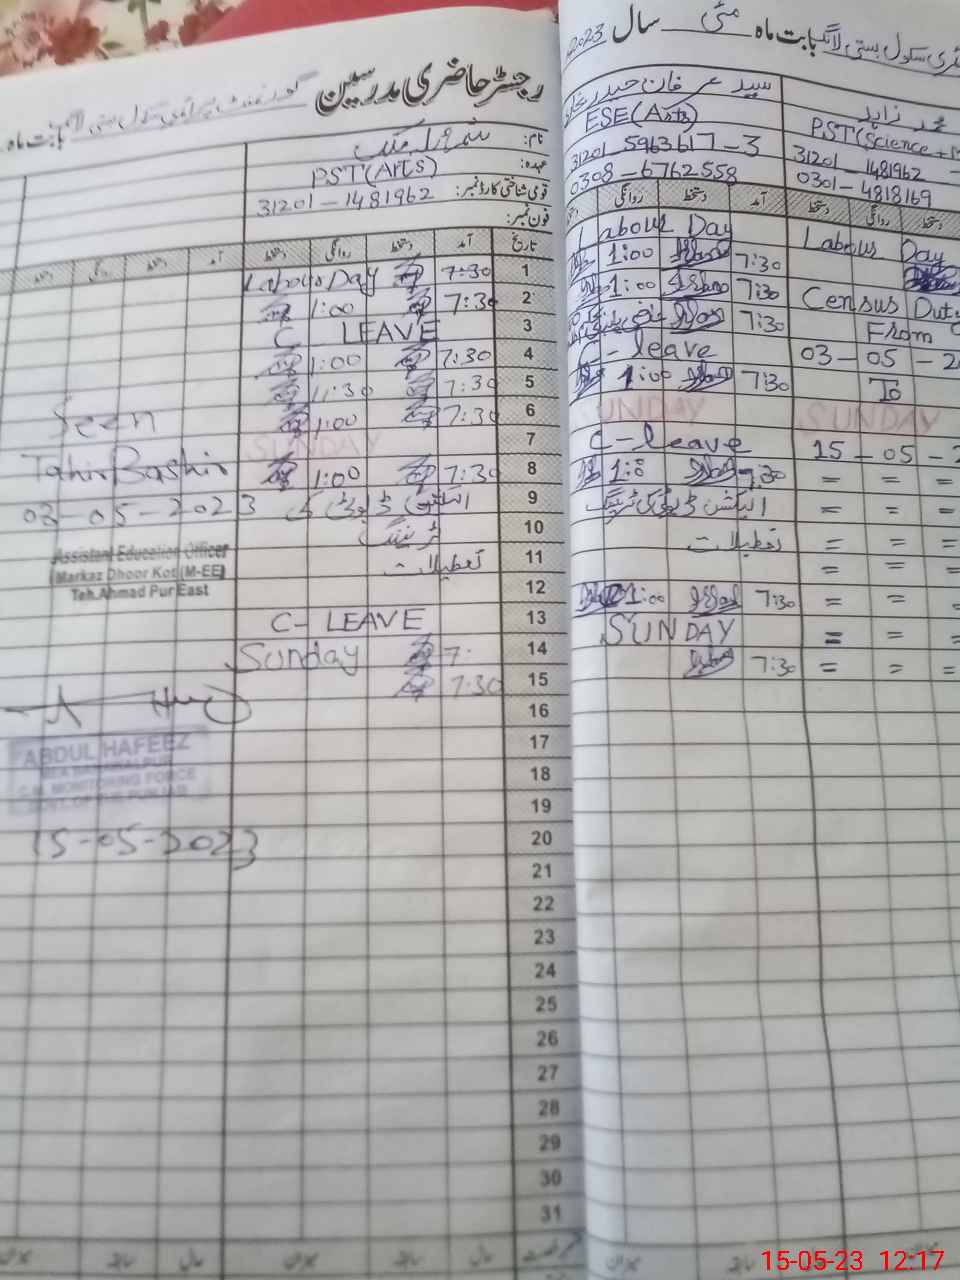 رجسٹر حاضری مدرسین گورنمنٹ پرائمری سکول بستی لانگ بابت ماہ
نام:
عہدہ: PST(Arts)
قومی شناختی کارڈ نمبر: 31201-1481962
فون نمبر:
تاریخ آمد دستخط روانگی دستخط آمد دستخط روانگی دستخط
1 7:30 Labour Day
2 7:30 1:00
3 C LEAVE
4 7:30 1:00
5 7:30 11:30
6 7:30 1:00
Seen
7 SUNDAY
8 7:30 1:00
Tahir Bashir
9 الیکشن ڈیوٹی کی
03-05-2023
10 ٹریننگ
11 تعطیلات
Assistant Education Officer
Markaz Dhoor Kot (M-EE)
Teh. Ahmad Pur East
12
13 C- LEAVE
14 Sunday 7:
15 7:30
16
17
ABDUL HAFEEZ
MEA BAHAWALPUR
C.M. MONITORING FORCE
GOVT. OF THE PUNJAB
18
19
20
15-05-2023
21
22
23
24
25
26
27
28
29
30
31
میزان سابقہ حال میزان سابقہ حال
سکول بستی لانگ بابت ماہ مئی سال 2023
سید عرفان حیدر
ESE(Arts)
31201 5963617-3
0308-6762558
روانگی دستخط آمد
Labour Day
1:00 7:30
1:00 7:30
7:30
C-leave
1:00 7:30
SUNDAY
C-leave
1:0 7:30
الیکشن ڈیوٹی کی ٹریننگ
تعطیلات
1:00 7:30
SUNDAY
7:30
محمد زاہد
PST(Science +
31201-1481962
0301-4818169
دستخط روانگی دستخط
Labour Day
Census Duty
From
03-05-2
To
SUNDAY
15-05-2
= = =
= = =
= = =
= = =
= = =
= = =
= = =
میزان سابقہ میزان
15-05-23 12:17